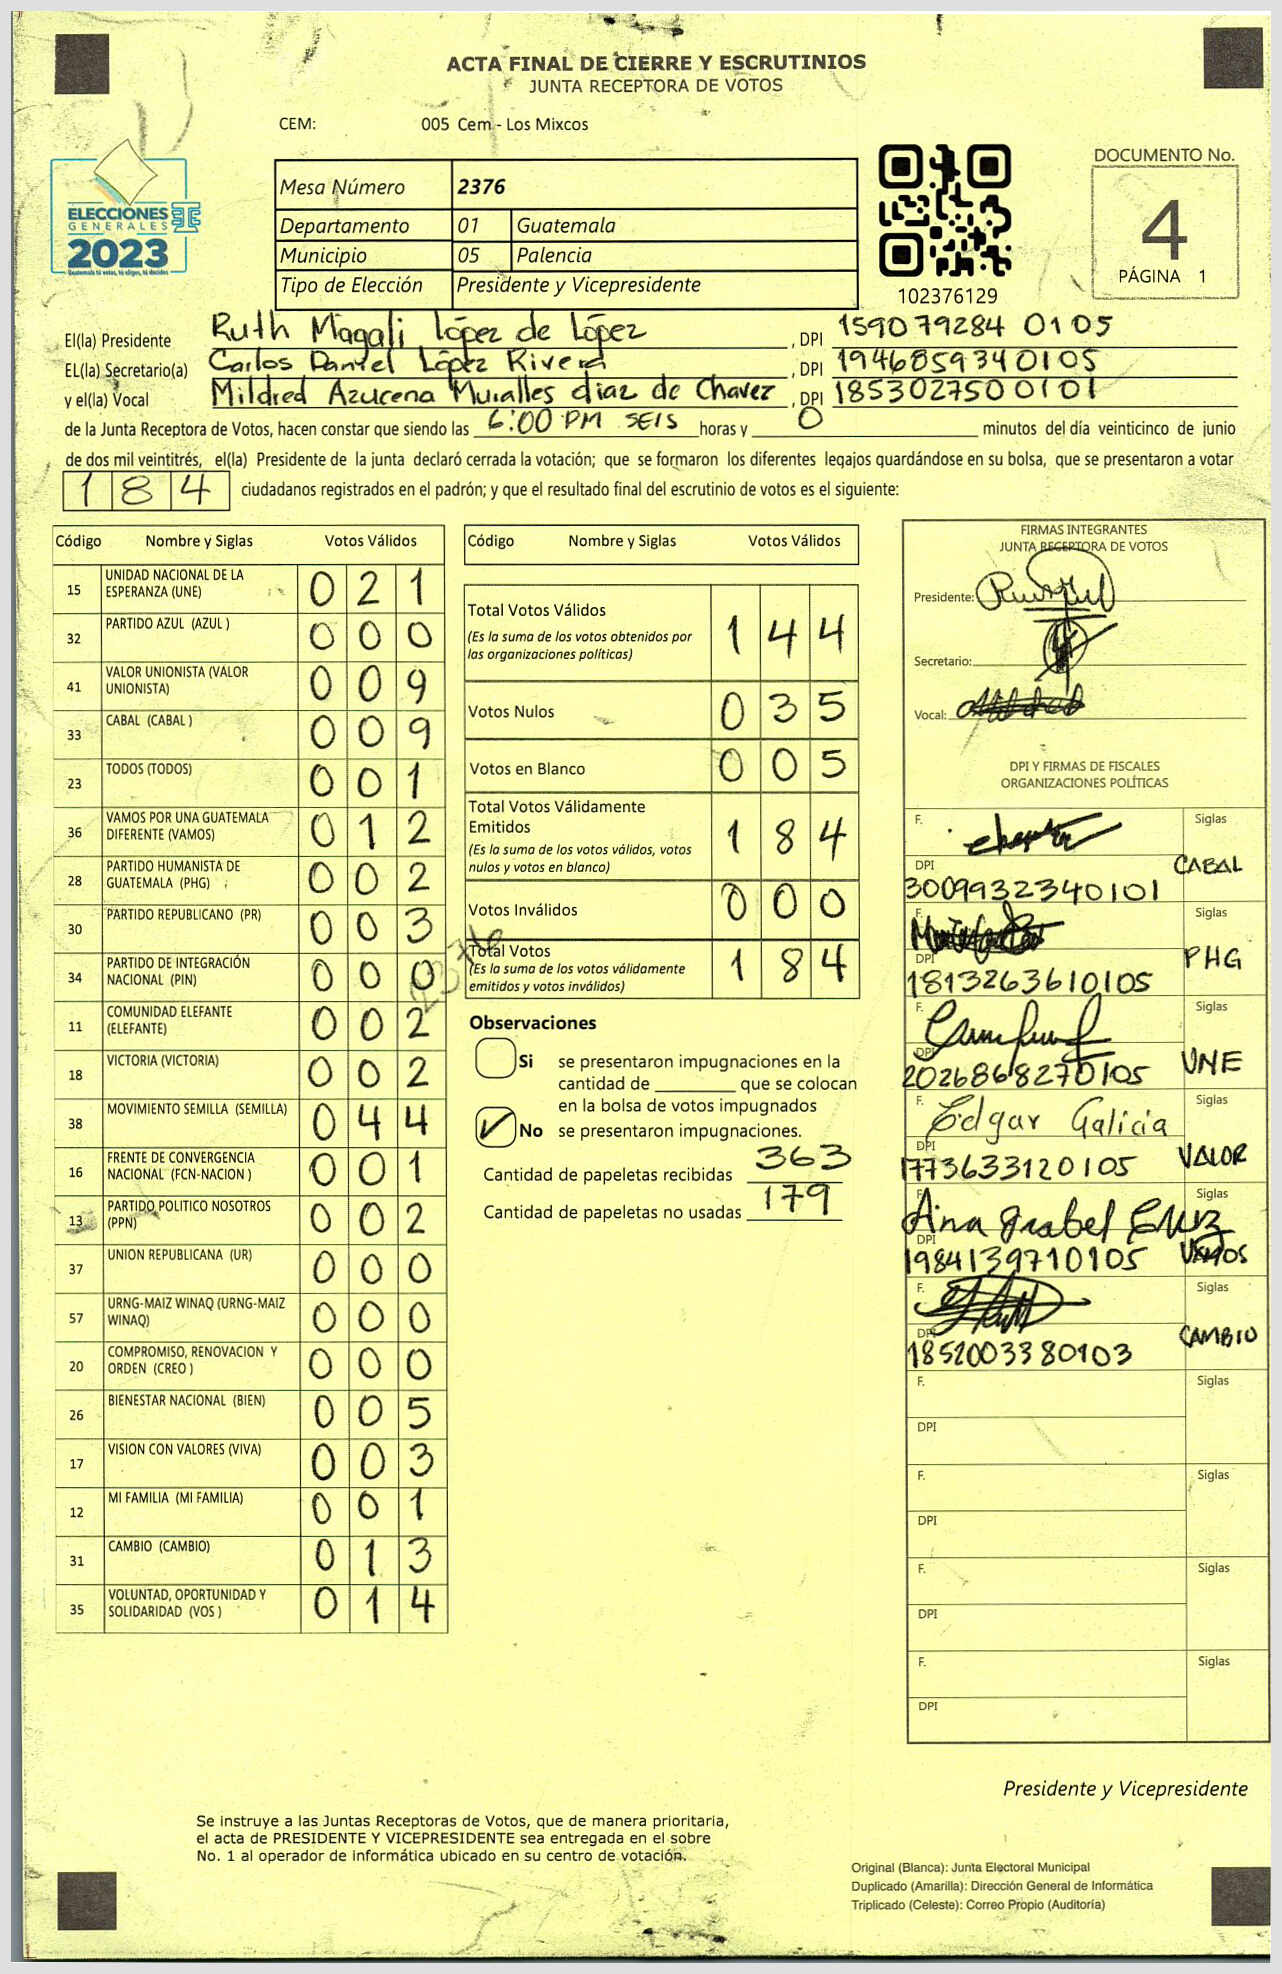 ACTA FINAL DE CIERRE Y ESCRUTINIOS
JUNTA RECEPTORA DE VOTOS
CEM: 005 Cem - Los Mixcos
ELECCIONES
GENERALES
2023
Guatemala tú votas, tú eliges, tú decides
Mesa Número 2376
Departamento 01 Guatemala
Municipio 05 Palencia
Tipo de Elección Presidente y Vicepresidente
102376129
DOCUMENTO No.
4
PÁGINA 1
El(la) Presidente Ruth Magali López de López , DPI 159079284 0105
EL(la) Secretario(a) Carlos Daniel López Rivera , DPI 1946859340105
y el(la) Vocal Mildred Azucena Muralles diaz de Chavez , DPI 1853027500101
de la Junta Receptora de Votos, hacen constar que siendo las 6:00 PM SEIS horas y 0 minutos del día veinticinco de junio
de dos mil veintitrés, el(la) Presidente de la junta declaró cerrada la votación; que se formaron los diferentes legajos quardándose en su bolsa, que se presentaron a votar
184 ciudadanos registrados en el padrón; y que el resultado final del escrutinio de votos es el siguiente:
Código Nombre y Siglas Votos Válidos
15 UNIDAD NACIONAL DE LA ESPERANZA (UNE) 021
32 PARTIDO AZUL (AZUL ) 000
41 VALOR UNIONISTA (VALOR UNIONISTA) 009
33 CABAL (CABAL ) 009
23 TODOS (TODOS) 001
36 VAMOS POR UNA GUATEMALA DIFERENTE (VAMOS) 012
28 PARTIDO HUMANISTA DE GUATEMALA (PHG) 002
30 PARTIDO REPUBLICANO (PR) 003
34 PARTIDO DE INTEGRACIÓN NACIONAL (PIN) 000
11 COMUNIDAD ELEFANTE (ELEFANTE) 002
18 VICTORIA (VICTORIA) 002
38 MOVIMIENTO SEMILLA (SEMILLA) 044
16 FRENTE DE CONVERGENCIA NACIONAL (FCN-NACION ) 001
13 PARTIDO POLITICO NOSOTROS (PPN) 002
37 UNION REPUBLICANA (UR) 000
57 URNG-MAIZ WINAQ (URNG-MAIZ WINAQ) 000
20 COMPROMISO, RENOVACION Y ORDEN (CREO ) 000
26 BIENESTAR NACIONAL (BIEN) 005
17 VISION CON VALORES (VIVA) 003
12 MI FAMILIA (MI FAMILIA) 001
31 CAMBIO (CAMBIO) 013
35 VOLUNTAD, OPORTUNIDAD Y SOLIDARIDAD (VOS ) 014
2376
Código Nombre y Siglas Votos Válidos
Total Votos Válidos 144
(Es la suma de los votos obtenidos por
las organizaciones políticas)
Votos Nulos 035
Votos en Blanco 005
Total Votos Válidamente
Emitidos 184
(Es la suma de los votos válidos, votos
nulos y votos en blanco)
Votos Inválidos 000
Total Votos 184
(Es la suma de los votos válidamente
emitidos y votos inválidos)
Observaciones
Si se presentaron impugnaciones en la
cantidad de ________ que se colocan
en la bolsa de votos impugnados
No se presentaron impugnaciones.
Cantidad de papeletas recibidas 363
Cantidad de papeletas no usadas 179
FIRMAS INTEGRANTES
JUNTA RECEPTORA DE VOTOS
Presidente:
Secretario:
Vocal:
DPI Y FIRMAS DE FISCALES
ORGANIZACIONES POLÍTICAS
F. Siglas
DPI CABAL
3009932340101
F. Siglas
DPI PHG
1813263610105
F. Siglas
DPI UNE
2026868270105
F. Edgar Galicia Siglas
DPI VALOR
1773633120105
F. Siglas
Ana Isabel Cruz
DPI VAMOS
1984139710105
F. Siglas
DPI CAMBIO
1852003380103
F. Siglas
DPI
F. Siglas
DPI
F. Siglas
DPI
F. Siglas
DPI
Presidente y Vicepresidente
Se instruye a las Juntas Receptoras de Votos, que de manera prioritaria,
el acta de PRESIDENTE Y VICEPRESIDENTE sea entregada en el sobre
No. 1 al operador de informática ubicado en su centro de votación.
Original (Blanca): Junta Electoral Municipal
Duplicado (Amarilla): Dirección General de Informática
Triplicado (Celeste): Correo Propio (Auditoría)